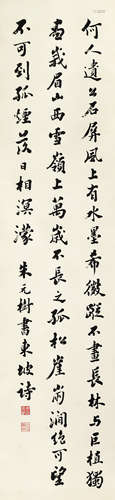 何人遺公石屏風上有水墨希微蹤不畫長林与巨植獨
畫峩眉山西雪嶺上萬歲不長之孤松崖崩澗絕可望
不可到孤煙落日相溟濛 朱元樹書東坡詩